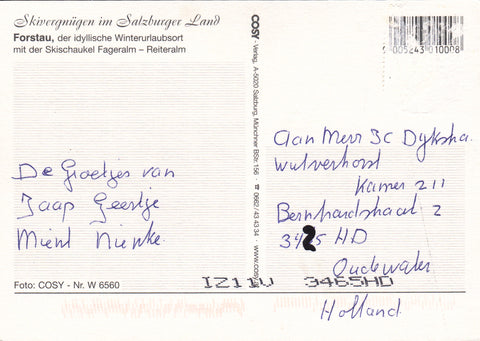 Skivergnügen im Salzburger Land
Forstau, der idyllische Winterurlaubsort
mit der Skischaukel Fageralm – Reiteralm
De Groetjes van
Jaap Geertje
Mient Nienke.
Foto: COSY - Nr. W 6560
COSY - Verlag, A-5020 Salzburg, Münchner BStr. 156 - ☎ 0662/43 43 34 www.COSY
9 005243 010008
Aan Mevr JC Dykstra.
Wulverhorst
Kamer 211
Bernhardstraat 2
3425 HD
Oudewater
Holland.
IZ11V 3465HD